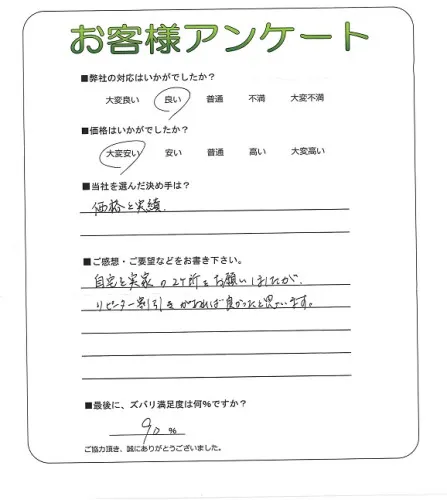 お客様アンケート
■弊社の対応はいかがでしたか?
大変良い 良い 普通 不満 大変不満
■価格はいかがでしたか?
大変安い 安い 普通 高い 大変高い
■当社を選んだ決め手は?
価格と実績.
■ご感想・ご要望などをお書き下さい。
自宅と実家の2ケ所をお願いしましたが、
リピーター割引きがあれば良かったと思います。
■最後に、ズバリ満足度は何%ですか?
90 %
ご協力頂き、誠にありがとうございました。